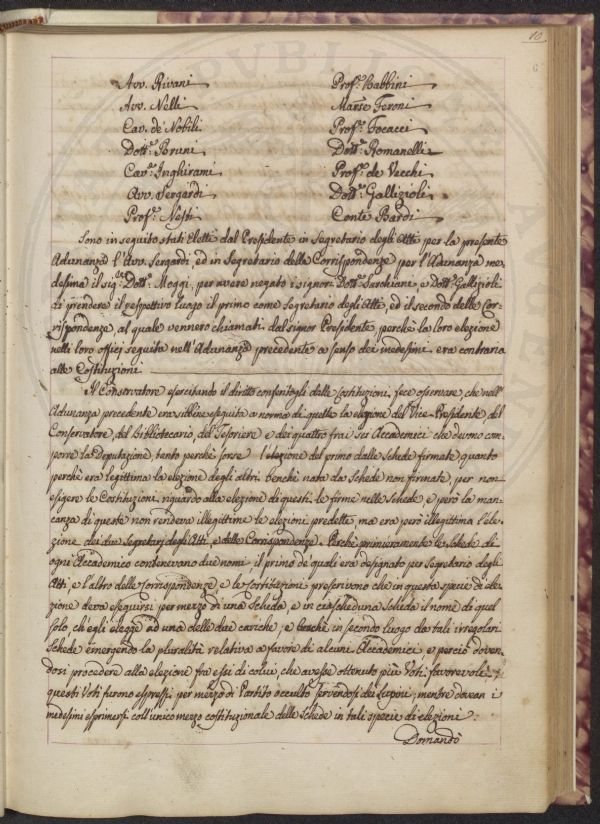 10
Avv. Rivani
Prof.r Babbini
Avv. Nelli
March.e Feroni
Cav. de' Nobili
Prof.r Focacci
Dott.r Bruni
Dott.r Romanelli
Cav.r Inghirami
Prof.r de Vecchi
Avv. Sergardi
Dott.r Gallizioli
Prof.r Nesti
Conte Bardi
Sono in seguito stati Eletti dal Presidente in Segretario degli Atti per la presente
Adunanza l'Avv. Sergardi, ed in Segretario della Corrispondenze per l'Adunanza me-
desima il sig.r Dott.r Moggi, per avere negato i signori Dott.r Sarchiani, e Dott.r Gallizioli
di prendere il respettivo luogo il primo come Segretario degli Atti, ed il secondo delle Cor-
rispondenze, al quale vennero chiamati dal signor Presidente, perchè la loro elezione
nelli loro offici seguita nell'Adunanza precedente a senso dei medesimi era contraria
alle Costituzioni.
Il Conservatore esercitando il diritto conferitogli dalle Costituzioni, fece osservare, che nell'
Adunanza precedente era sibbene seguita a norma di quelle la elezione del Vice-Presidente, del
Conservatore, del Bibliotecario, del Tesoriere e dei quattro frai sei Accademici che devono com-
porre la Deputazione, tanto perchè forse l'elezione del primo dalle schede firmate, quanto
perchè era legittima la elezione degli altri, benchè nata da schede non firmate, per non
esigere le Costituzioni, riguardo alla elezione di questi, le firme nelle schede, e però la man-
canza di queste non rendeva illegittime le elezioni predette, ma era però illegittima l'ele-
zione dei due Segretarj degli Atti, e delle Corrispondenze. Perchè primieramente le schede di
ogni Accademico contenevano due nomi, il primo de' quali era designato per Segretario degli
Atti, e l'altro delle Corrispondenze, e le Costituzioni prescrivono che in questa specie di ele-
zione deva eseguirsi per mezzo di una scheda, e in ciascheduna scheda il nome di quel
solo, ch'egli elegge ad una delle due cariche; e perchè in secondo luogo da tali irregolari
schede emergendo la pluralità relativa a favore di alcuni Accademici e perciò doven-
dosi procedere alla elezione fra essi di colui, che avesse ottenuto più Voti favorevoli,
questi Voti furono espressi, per mezzo di Partito occulto servendosi dei Lupini, mentre dovean i
medesimi esprimersi coll'unico mezzo costituzionale delle schede in tali specie di elezioni.
Domandò